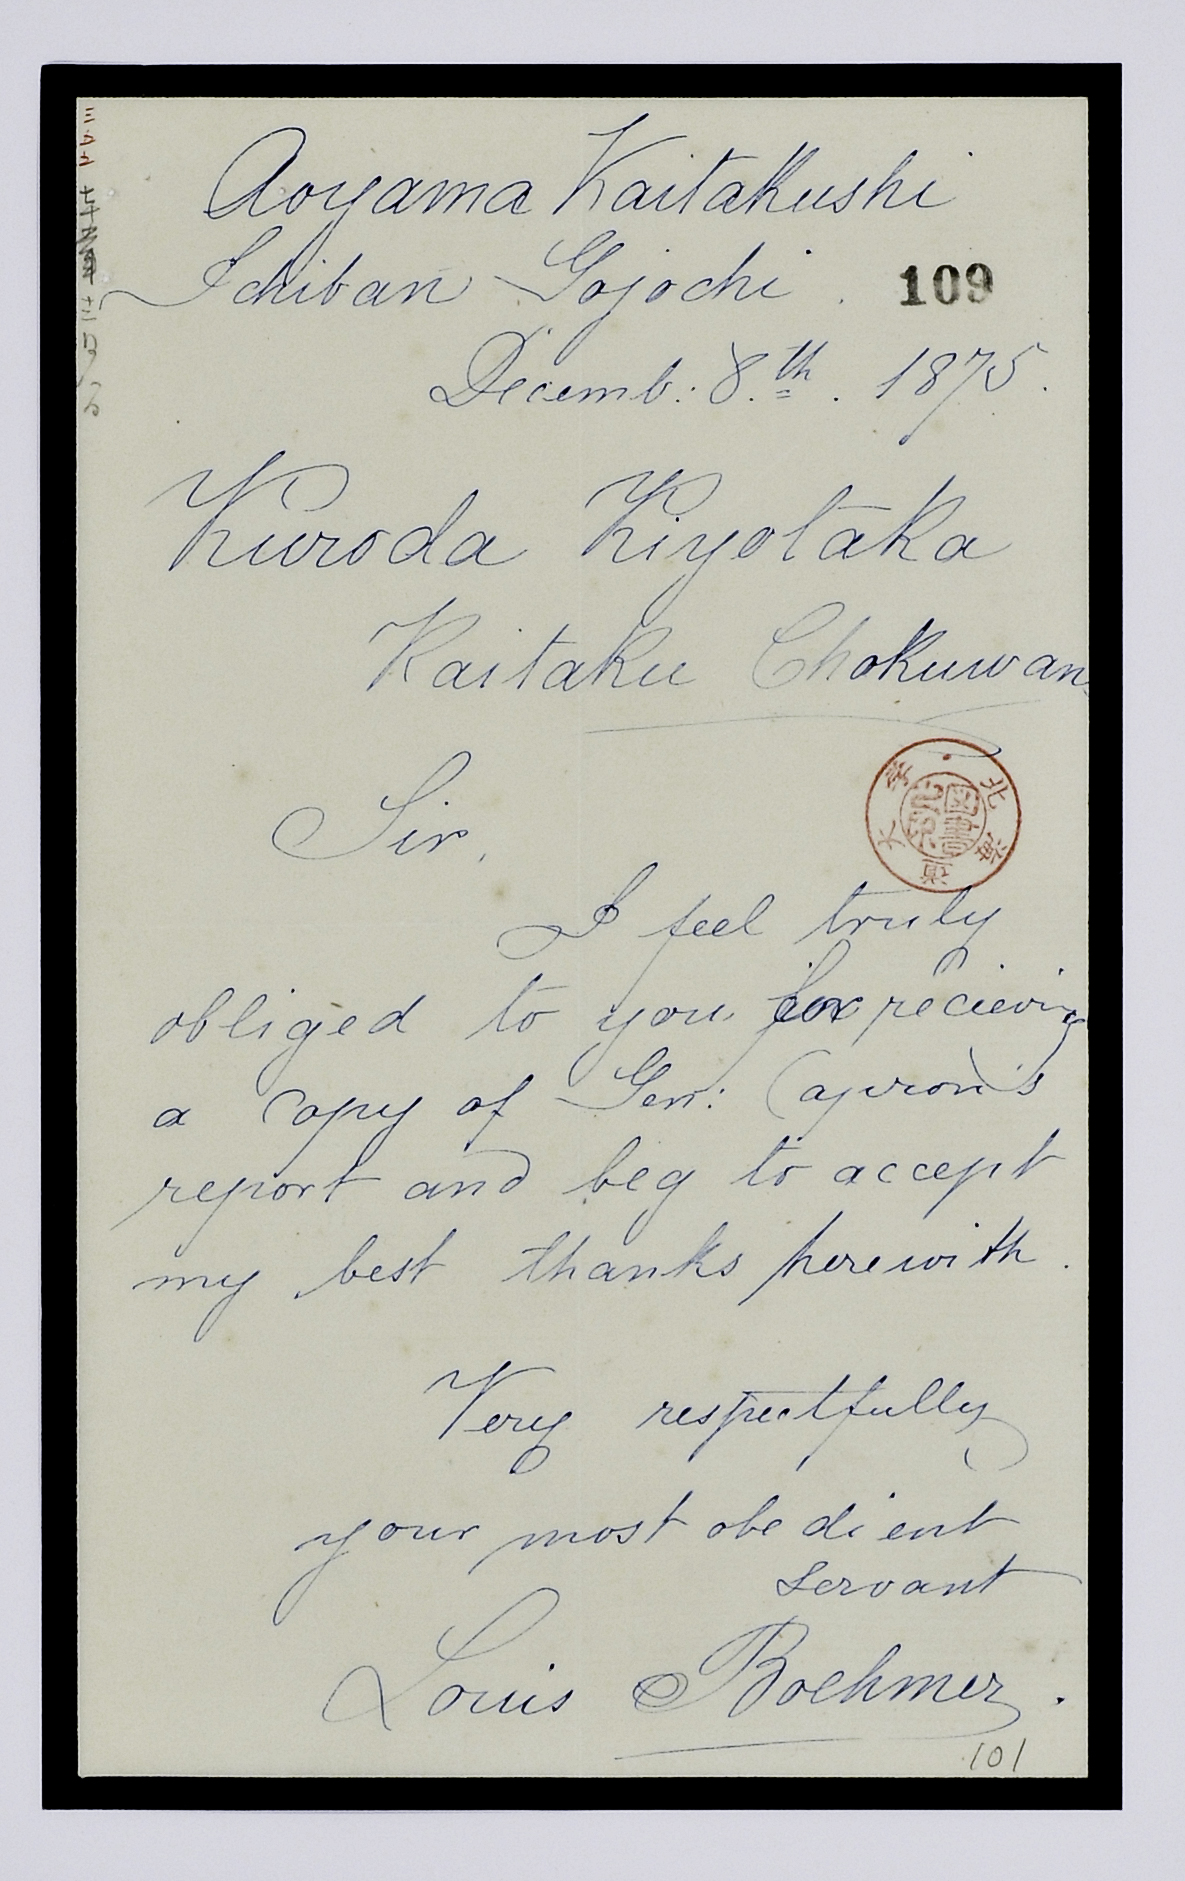 Aoyama Kaitakushi
Ichiban Gojochi.
109
Decemb: 8th. 1875.
Kuroda Kiyotaka
Kaitaku Chokuwan
Sir,
北海道大学
図書
I feel truly
obliged to you for recieving
a copy of Gen: Capron's
report and beg to accept
my best thanks herewith.
Very respectfully
your most obedient
servant
Louis Boehmer.
101